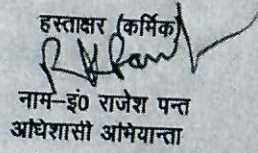 हस्ताक्षर (कर्मिक)
नाम–इं0 राजेश पन्त
अधिशासी अभियान्ता